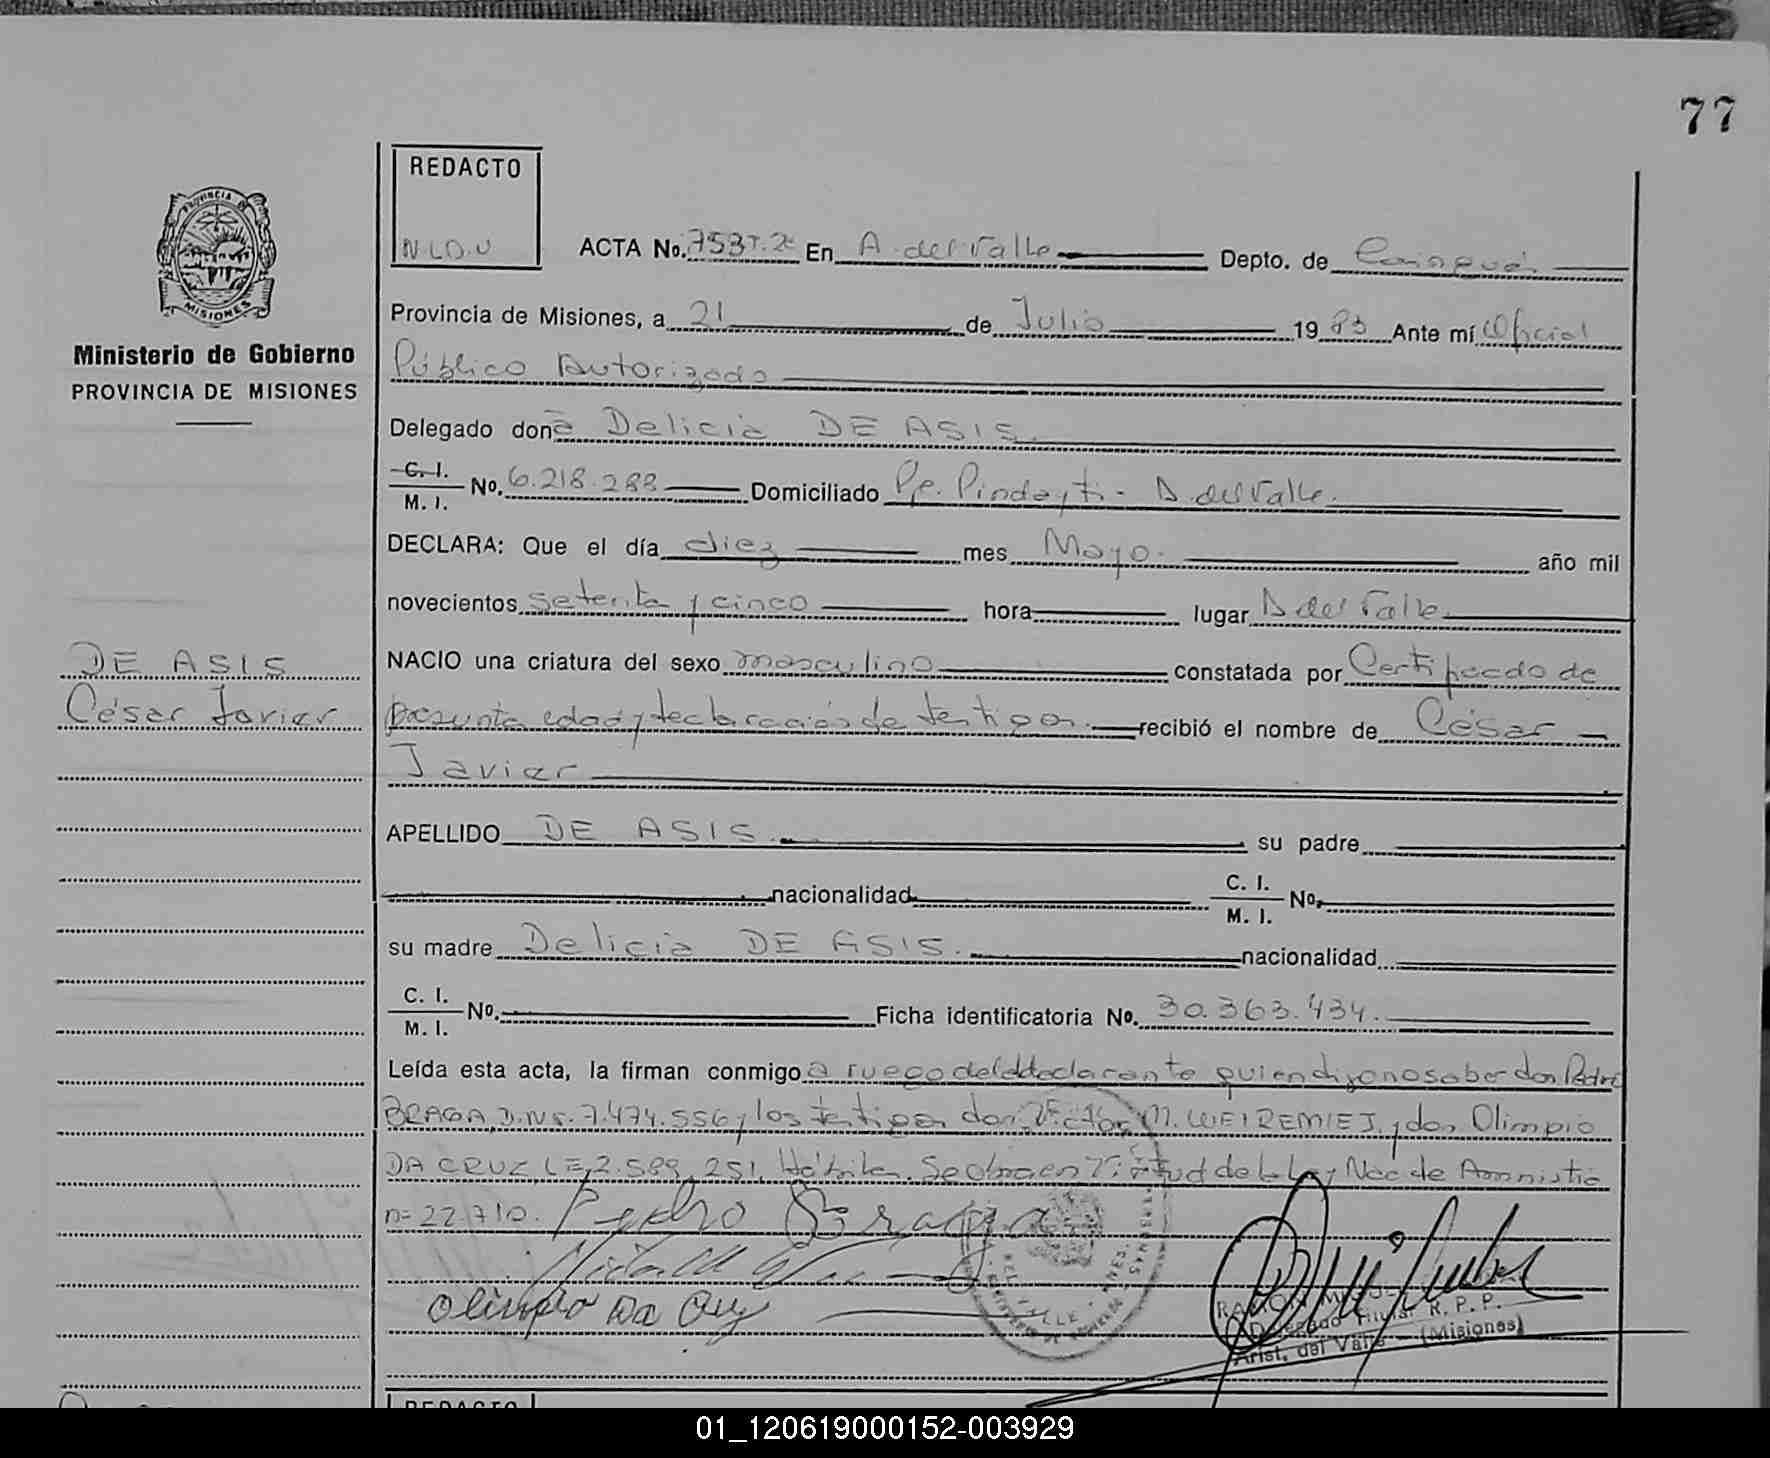 77
REDACTO
N.L.D.U
PROVINCIA DE
MISIONES
Ministerio de Gobierno
PROVINCIA DE MISIONES
DE ASIS
César Javier
ACTA No. 753 T.2º En A. del Valle Depto. de Cainguás
Provincia de Misiones, a 21 de Julio 1983 Ante mí Oficial
Público Autorizado
Delegado donã Delicia DE ASIS.
C. I. M. I. No. 6.218.288 Domiciliado Pje. Pindayti - A. del Valle.
DECLARA: Que el día diez mes Mayo. año mil
novecientos setenta y cinco hora lugar A del Valle
NACIO una criatura del sexo masculino constatada por Certificado de
presunta edad y declaración de testigos. recibió el nombre de César
Javier
APELLIDO DE ASIS. su padre
nacionalidad C. I. M. I. No.
su madre Delicia DE ASIS. nacionalidad
C. I. M. I. No. Ficha identificatoria No. 30.363.434.
Leída esta acta, la firman conmigo a ruego del declarante quien dijo no saber don Pedro
BRAGA, D.N.I. 7.474.556 y los testigos don Víctor M. y don Olimpio
DA CRUZ, L.E. 2.589.251, Hábiles. Se obra en Virtud de la Ley Nac de Amnistía
nº 22.710. Pedro Braga
Olimpio Da Cruz
DEL VALLE
RAMON
Delegado Titular R. P. P.
Arist. del Valle - (Misiones)
REDACTO
01_120619000152-003929